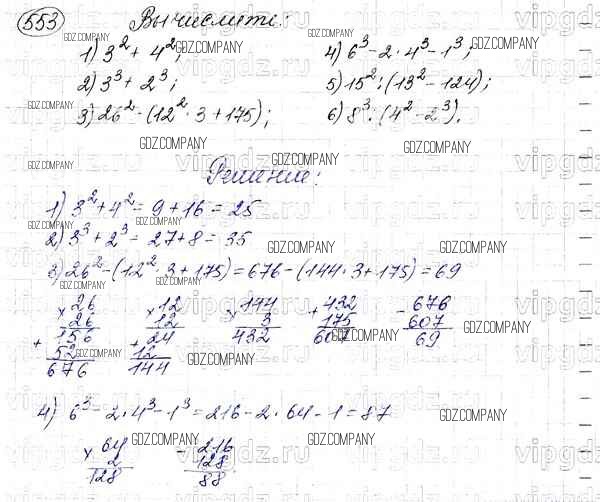 553 Вычислите:
1) 3² + 4²; 4) 6³ - 2 · 4³ - 1³;
2) 3³ + 2³; 5) 15² : (13² - 124);
3) 26² - (12² · 3 + 175); 6) 8³ : (4² - 2³).
Решение:
1) 3² + 4² = 9 + 16 = 25
2) 3³ + 2³ = 27 + 8 = 35
3) 26² - (12² · 3 + 175) = 676 - (144 · 3 + 175) = 69
× 26 × 12 × 144 + 432 - 676
26 12 3 175 607
+ 156 + 24 432 607 69
52 12
676 144
4) 6³ - 2 · 4³ - 1³ = 216 - 2 · 64 - 1 = 87
× 64 - 216
2 128
128 88
GDZ.COMPANY
vipgdz.ru